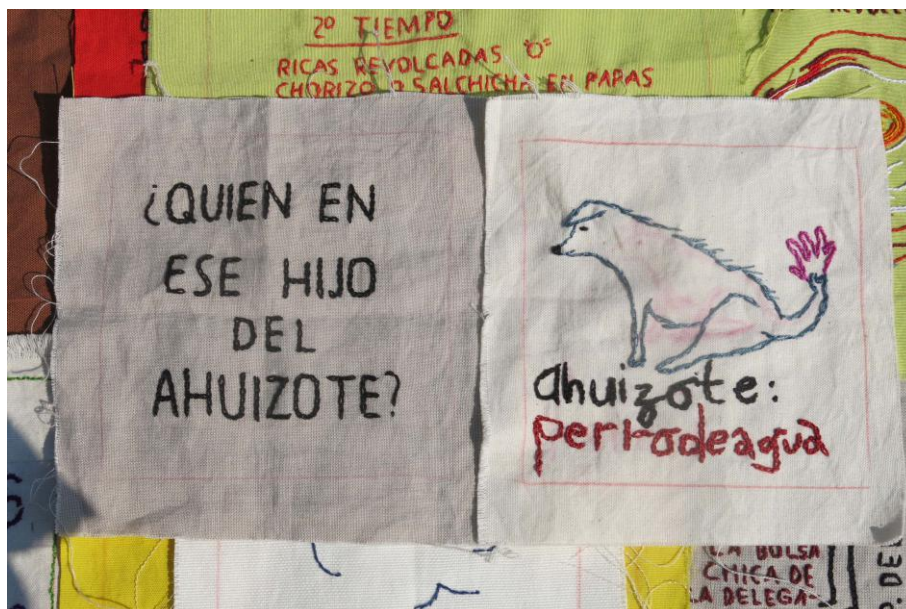 2º TIEMPO
RICAS REVOLCADAS "O"
CHORIZO O SALCHICHA EN PAPAS
¿QUIEN EN
ESE HIJO
DEL
AHUIZOTE?
ahuizote:
perrodeagua
LA BOLSA
CHICA DE
LA DELEGA-